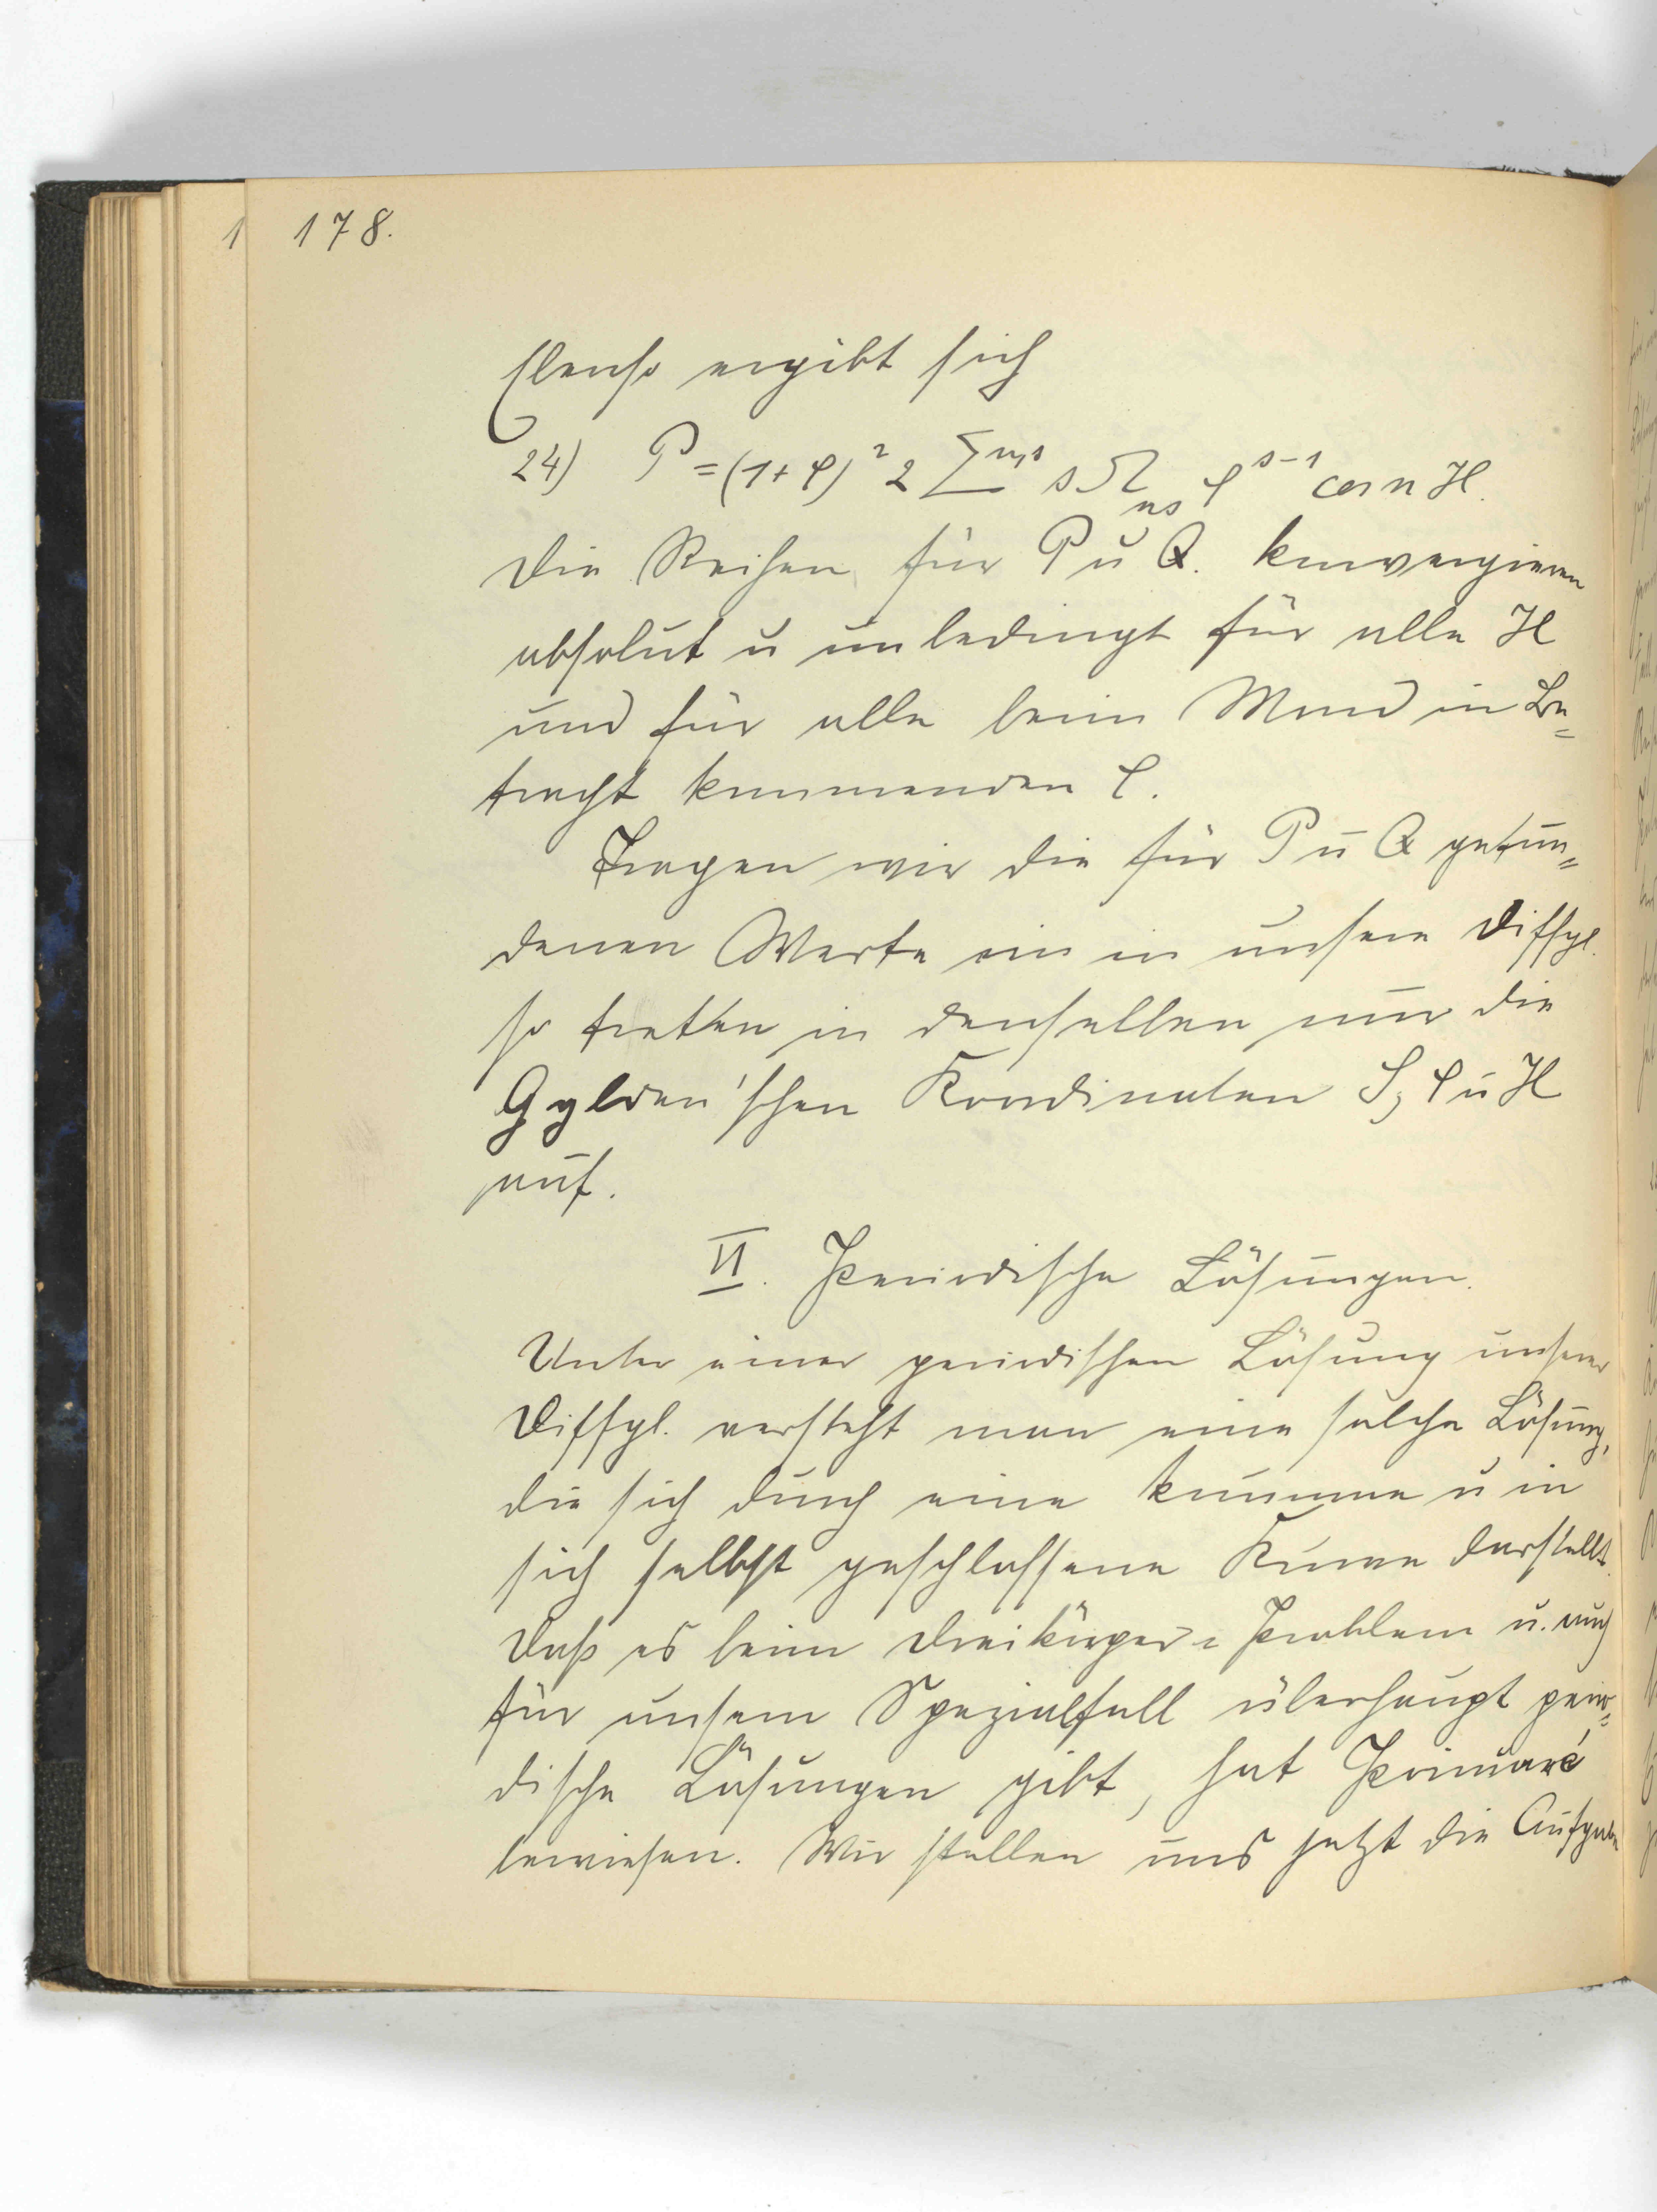 178.
Ebenso ergibt sich
24) P = (1+φ)² 2 Σⁿ,ˢ s Ω_ns φ^{s-1} cos n H.
Die Reihen für P u Q. konvergieren
absolut u unbedingt für alle H
und für alle beim Mond in Be=
tracht kommenden φ.
Tragen wir die für P u Q gefun=
denen Werte ein in unsere Diffgl.
so treten in denselben nur die
Gylden'schen Koordinaten S, φ u H
auf.
II. Periodische Lösungen.
Unter einer periodischen Lösung unserer
Diffgl. versteht man eine solche Lösung,
die sich durch eine krumme u in
sich selbst geschlossene Kurve darstellt.
Daß es beim Dreikörper=Problem u. auch
für unsern Spezialfall überhaupt perio=
dische Lösungen gibt, hat Poincaré
bewiesen. Wir stellen uns jetzt die Aufgabe